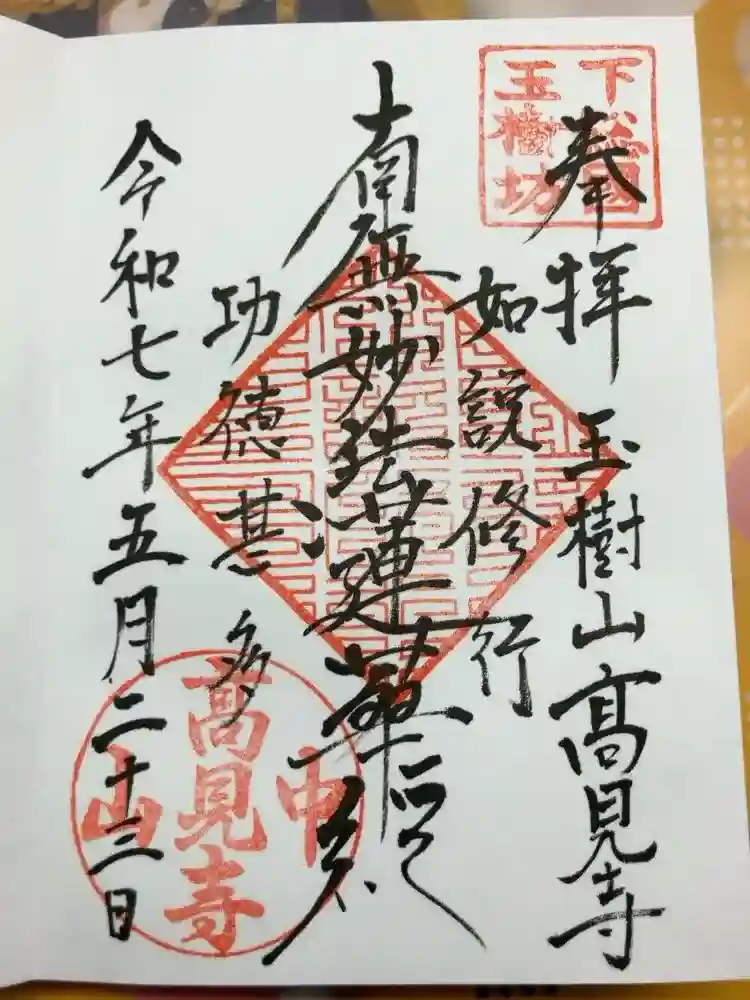 奉拝 玉樹山高見寺
如説修行
南無妙法蓮華経
功徳甚多
令和七年五月二十三日
下総國
玉樹坊
高見寺
中
山